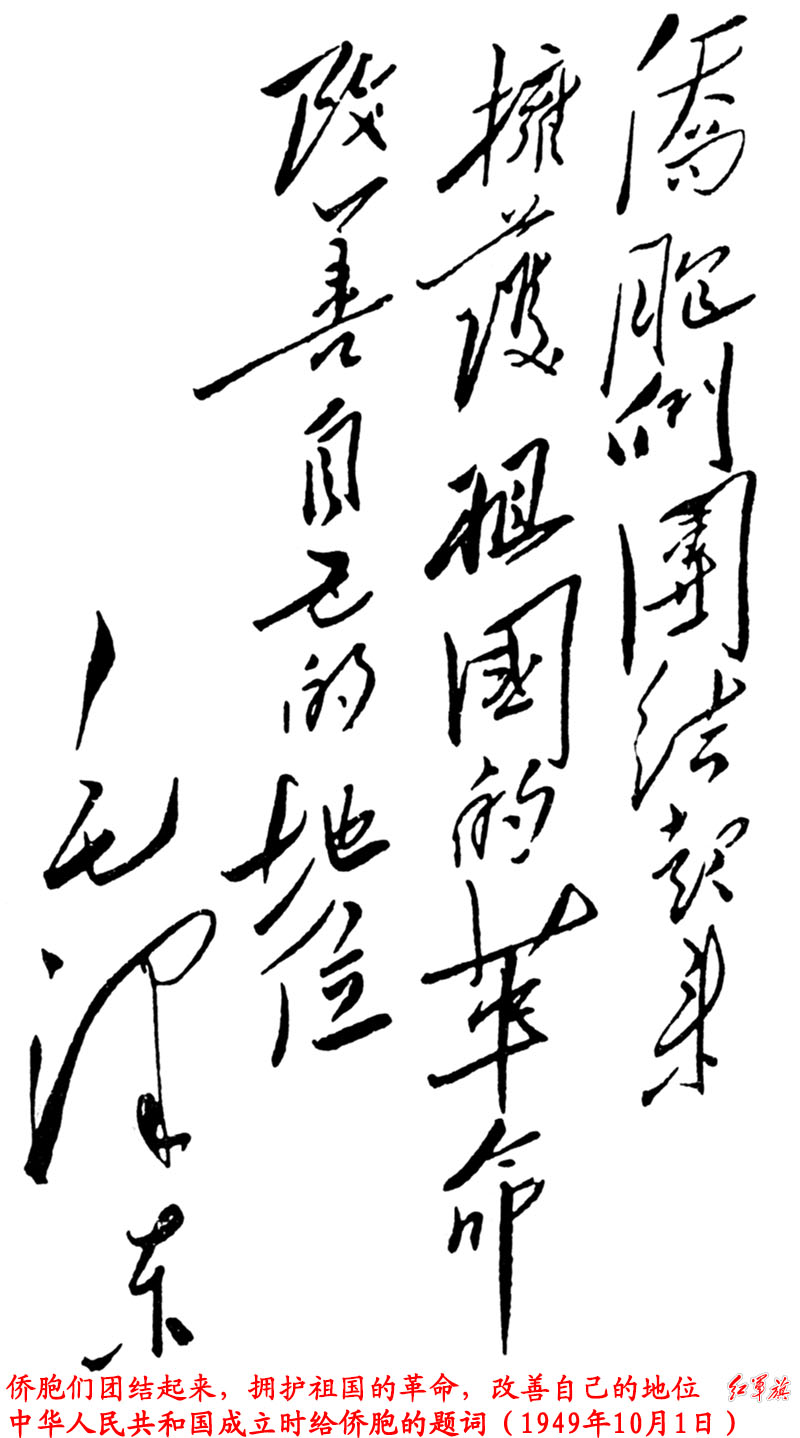 僑胞們團结起来
擁護祖國的革命
改善自己的地位
毛泽东
侨胞们团结起来，拥护祖国的革命，改善自己的地位
红军旗
中华人民共和国成立时给侨胞的题词（1949年10月1日）